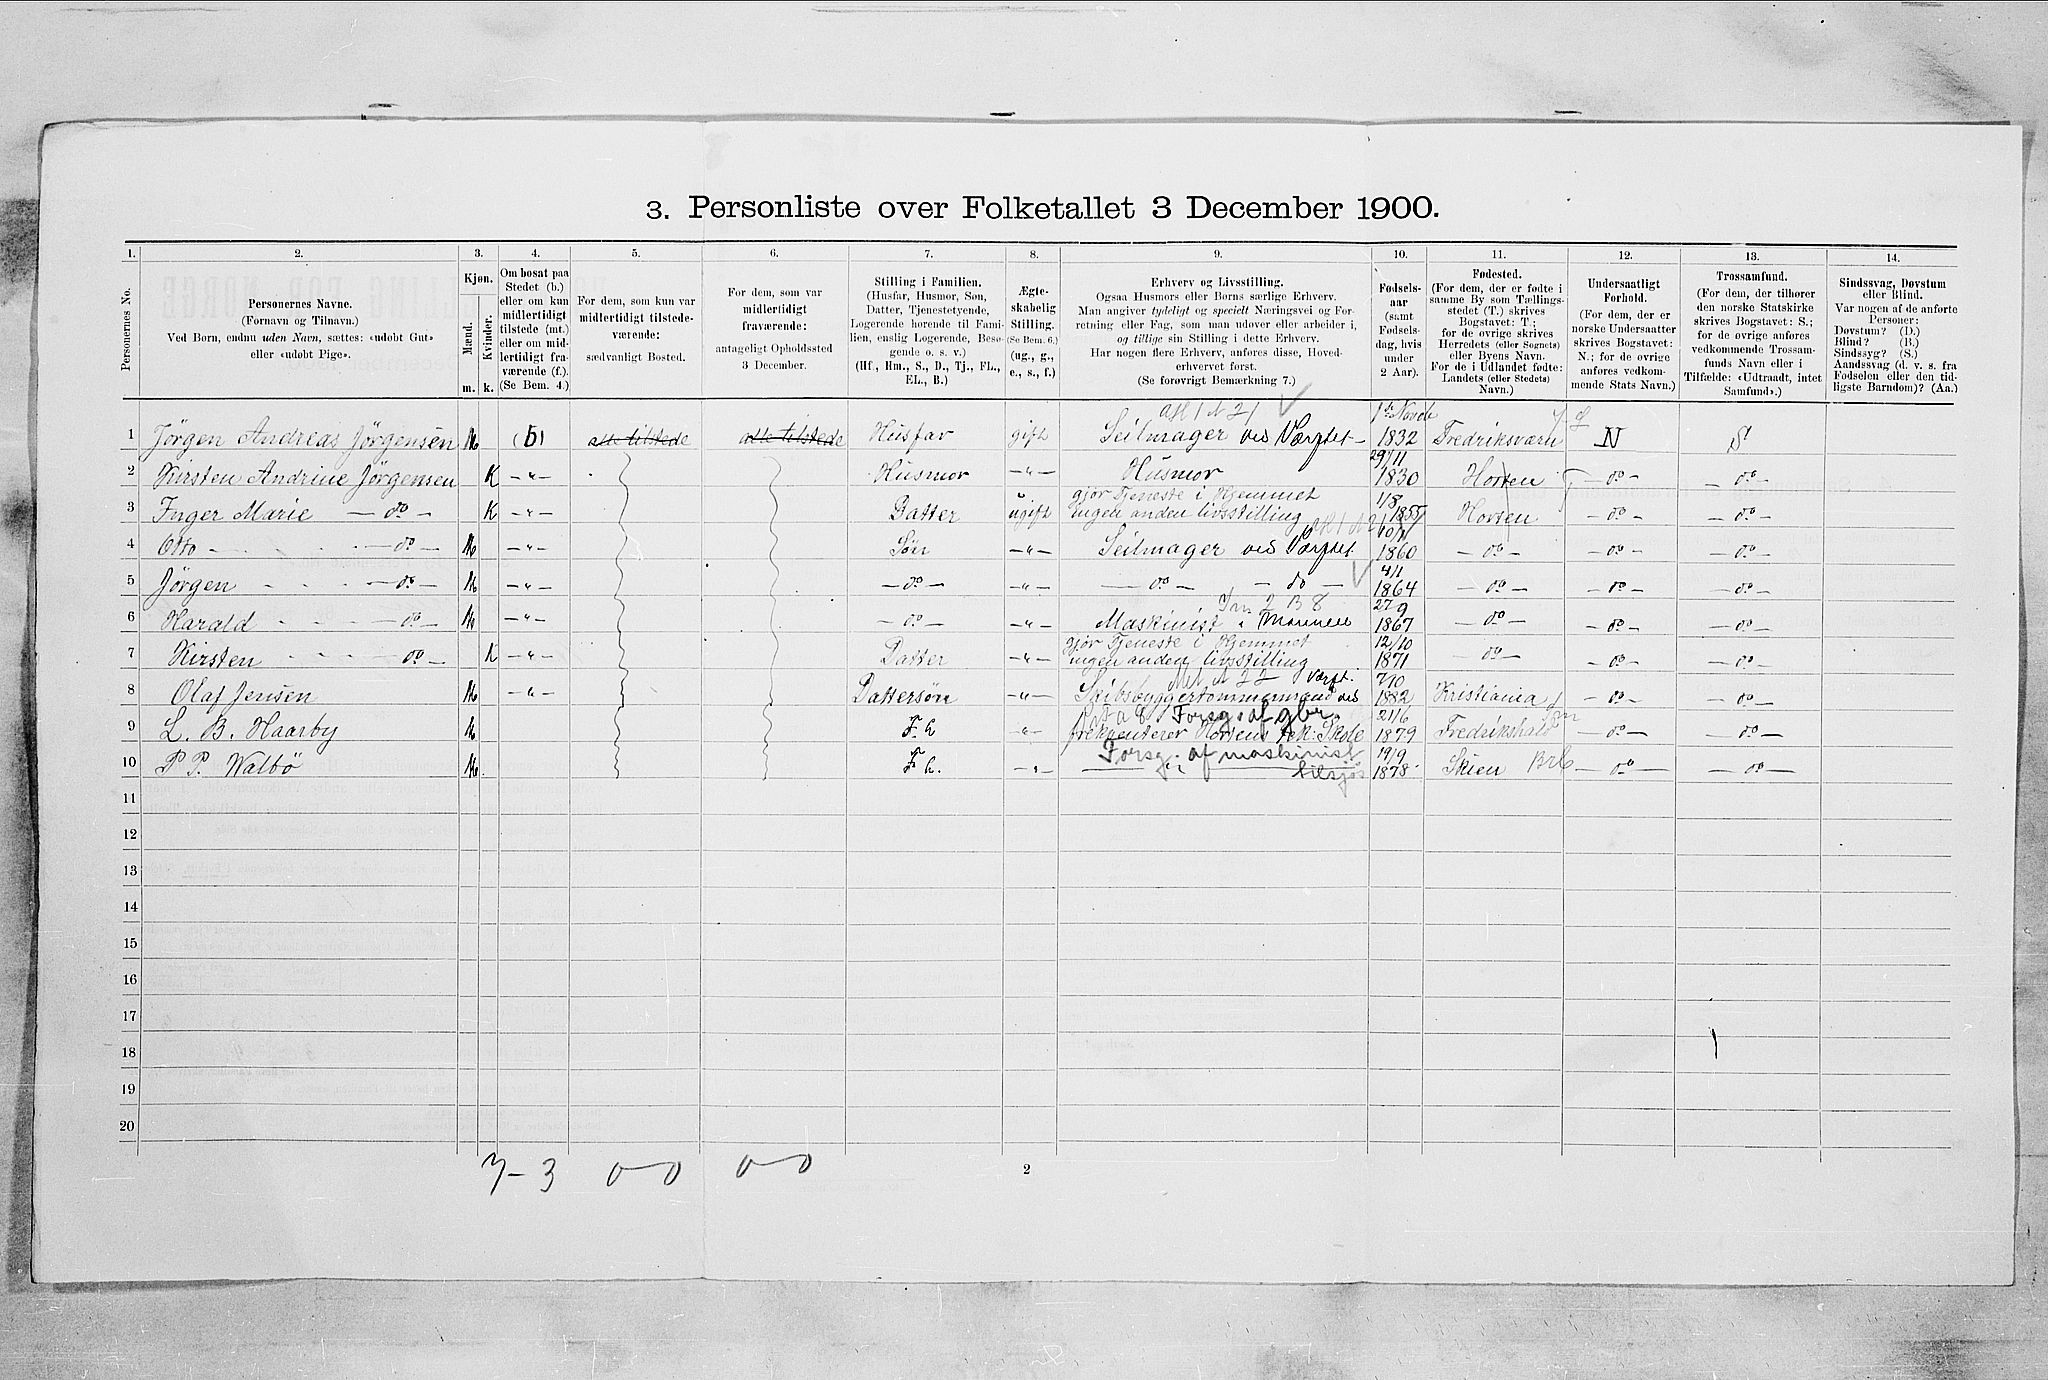 3. Personliste over Folketallet 3 December 1900.
1. 2. 3. 4. 5. 6. 7. 8. 9. 10. 11. 12. 13. 14.
Personernes No.
Personernes Navne.
(Fornavn og Tilnavn.)
Ved Børn, endnu uden Navn, sættes: «udøbt Gut»
eller «udøbt Pige».
Kjøn.
Mænd.
Kvinder.
m. k.
Om bosat paa
Stedet (b.)
eller om kun
midlertidigt
tilstede (mt.)
eller om mid-
lertidigt fra-
værende (f.).
(Se Bem. 4.)
For dem, som kun var
midlertidigt tilstede-
værende:
sædvanligt Bosted.
For dem, som var
midlertidigt
fraværende:
antageligt Opholdssted
3 December.
Stilling i Familien.
(Husfar, Husmor, Søn,
Datter, Tjenestetyende,
Logerende hørende til Fami-
lien, enslig Logerende, Besø-
gende o. s. v.)
(Hf., Hm., S., D., Tj., FL.,
EL., B.)
Ægte-
skabelig
Stilling.
(Se Bem. 6.)
(ug., g.,
e., s., f.)
Erhverv og Livsstilling.
Ogsaa Husmors eller Børns særlige Erhverv.
Man angiver tydeligt og specielt Næringsvei og For-
retning eller Fag, som man udover eller arbeider i,
og tillige sin Stilling i dette Erhverv.
Har nogen flere Erhverv, anføres disse, Hoved-
erhvervet først.
(Se forøvrigt Bemærkning 7.)
Fødsels-
aar
(samt
Fødsels-
dag, hvis
under
2 Aar).
Fødested.
(For dem, der er fødte i
samme By som Tællings-
stedet (T.) skrives
Bogstavet: T.;
for de øvrige skrives
Herredets (eller Sognets)
eller Byens Navn.
For de i Udlandet fødte:
Landets (eller Stedets)
Navn.)
Undersaatligt
Forhold.
(For dem, der er
norske Undersaatter
skrives Bogstavet:
N.; for de øvrige
anføres vedkom-
mende Stats Navn.)
Trossamfund.
(For dem, der tilhører
den norske Statskirke
skrives Bogstavet: S.;
for de øvrige anføres
vedkommende Trossam-
funds Navn eller i
Tilfælde: «Udtraadt, intet
Samfund».)
Sindssvag, Døvstum
eller Blind.
Var nogen af de anførte
Personer:
Døvstum? (D.)
Blind? (B.)
Sindssyg? (S.)
Aandssvag (d. v. s. fra
Fødselen eller den tid-
ligste Barndom)? (Aa.)
1 Jørgen Andreas Jørgensen M (b) alle tilstede alle tilstede Husfar gift Seilmager ved Værftet 1832 Fredriksværn N S
2 Kirsten Andrine Jørgensen K -"- Husmor -"- Husmor 29/11 1830 Horten T -do- -do-
3 Inger Marie -do- K -"- Datter ugift gjør Tjeneste i Hjemmet
ingen anden livsstilling 1/8 1855 Horten -do- -do-
4 Otto -do- M -"- Søn -"- Seilmager ved Værftet 1860 -do- -do- -do-
5 Jørgen -do- M -"- -do- -"- -do- -do- 4/1 1864 -do- -do- -do-
6 Harald -do- M -"- -do- -"- Maskinist i Marinen 27/9 1867 -do- -do- -do-
7 Kirsten -do- K -"- Datter -"- gjør Tjeneste i Hjemmet
ingen anden livsstilling 12/10 1871 -do- -do- -do-
8 Olaf Jensen M -"- Dattersøn -"- Skibsbyggertømmermand ved Værft. 7/10 1882 Kristiania -do- -do-
9 L. B. Haarby M F. L -"- Fors. af gbr.
frekventerer Hortens tek: Skole 21/6 1879 Fredrikshald -do- -do-
10 P P. Walbö M F. L. -"- Forsg. af maskinist
tilsjøs 19/9 1878 Skien -do- -do-
11
12
13
14
15
16
17
18
19
20
7-3 0-0 0-0
2